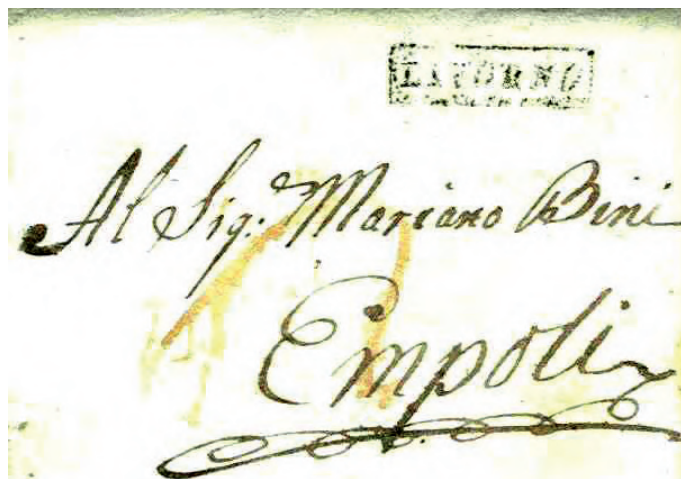 LIVORNO
Al Sig. Mariano Bini
Empoli